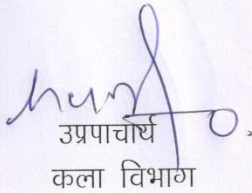 उप्रपाचार्य
कला विभाग